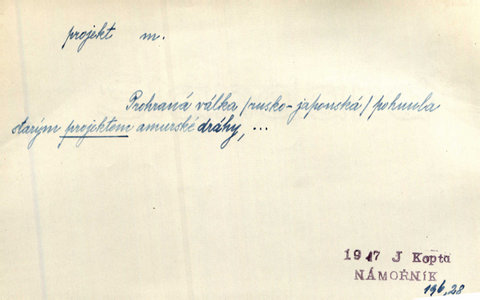 projekt m.
Prohraná válka /rusko-japonská/ pohnula
starým projektem amurské dráhy, ...
1917 J Kopta
NÁMOŘNÍK
196,28